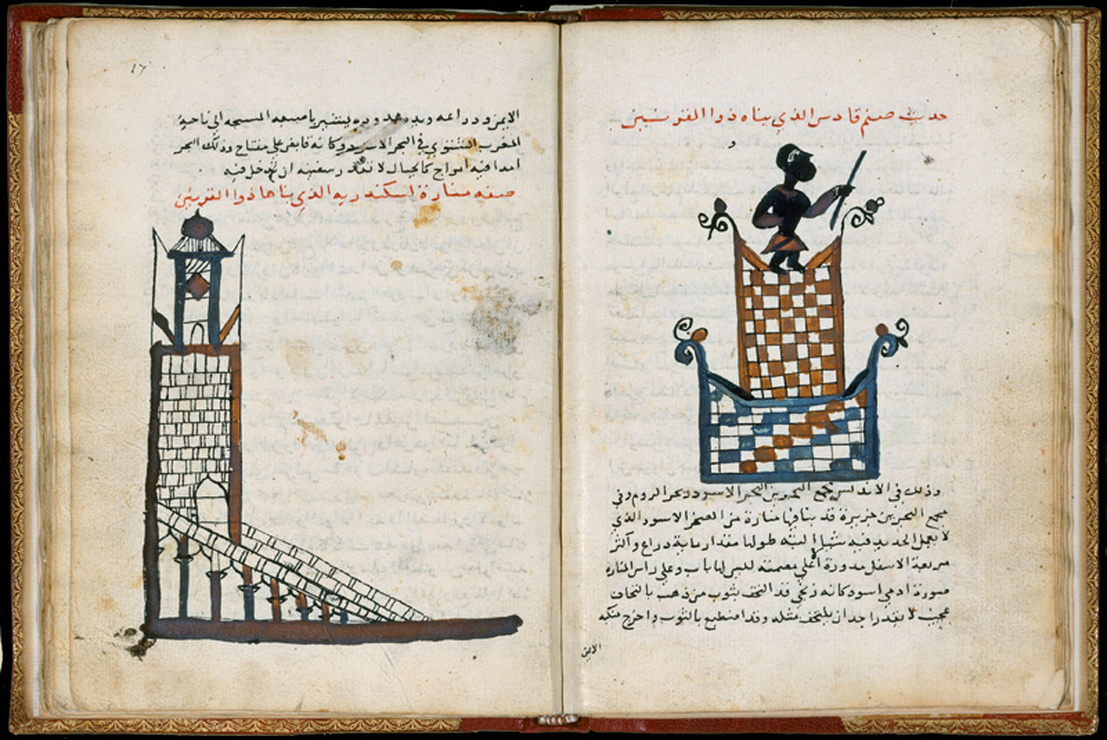 حديث صنم قادس الذي بناه ذوا القرنين
و
وذلك في الاندلس مجمع البحرين البحر الاسود وبحر الروم وفي
مجمع البحرين جزيرة قد بنا فيها منارة من الصخر الاسود الذي
لا يعمل الحديد فيه شيا البته طولها مقدار ماية ذراع واكثر
مربعة الاسفل مدورة اعلي مصمته لليس لها باب وعلي راس المنارة
صورة ادمي اسود كانه زنجي قد التحف بثوب من ذهب بالتحاف
عجيب لا يقدر احد ان يلتحف مثله وقد اضطبع بالثوب واخرج منكبه
الايمن
١٧
الايمن وذراعه ويده ممدوده يشير باصبعه المسبحه الي ناحية
المغرب الشتوي في البحر الاسود وكانه قابض علي مفتاح وذلك البحر
ابدا فيه امواج كالجبال لا تقدر سفينه ان تدخل فيه
صفة منارة اسكندريه الذي بناها ذوا القرنين